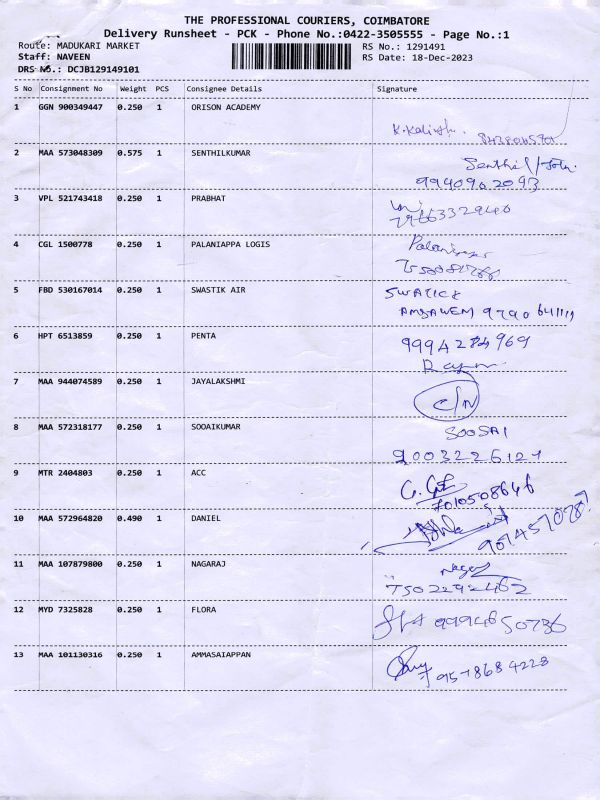 THE PROFESSIONAL COURIERS, COIMBATORE
Delivery Runsheet - PCK - Phone No.:0422-3505555 - Page No.:1
Route: MADUKARI MARKET RS No.: 1291491
Staff: NAVEEN RS Date: 18-Dec-2023
DRS No.: DCJB129149101
S No Consignment No Weight PCS Consignee Details Signature
1 GGN 900349447 0.250 1 ORISON ACADEMY
2 MAA 573048309 0.575 1 SENTHILKUMAR
9940962093
3 VPL 521743418 0.250 1 PRABHAT
4 CGL 1500778 0.250 1 PALANIAPPA LOGIS
5 FBD 530167014 0.250 1 SWASTIK AIR
6 HPT 6513859 0.250 1 PENTA 9994284969
7 MAA 944074589 0.250 1 JAYALAKSHMI C/N
8 MAA 572318177 0.250 1 SOOAIKUMAR SOOSAI
9003226127
9 MTR 2404803 0.250 1 ACC
7010508646
10 MAA 572964820 0.490 1 DANIEL
11 MAA 107879800 0.250 1 NAGARAJ
7502292462
12 MYD 7325828 0.250 1 FLORA 9994650736
13 MAA 101130316 0.250 1 AMMASAIAPPAN 9578684228